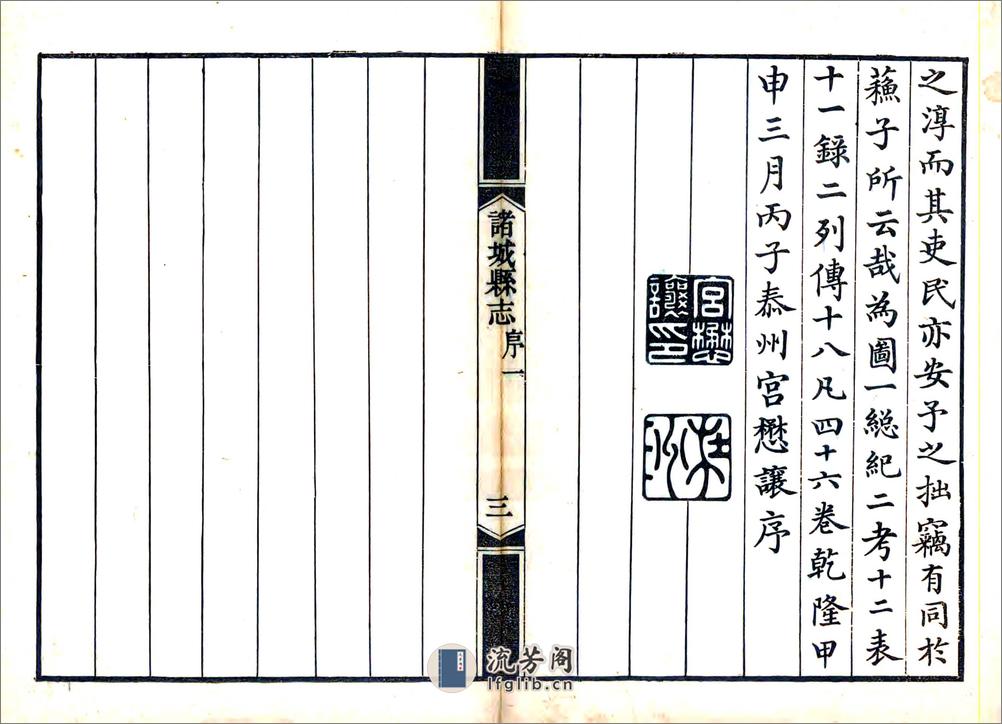 之淳而其吏民亦安予之拙竊有同於
蘓子所云哉為圖一緫紀二考十二表
十一錄二列傳十八凡四十六卷乾隆甲
申三月丙子泰州宮懋讓序
宮懋讓印
諸城縣志 序一 三
流芳阁
lfglib.cn